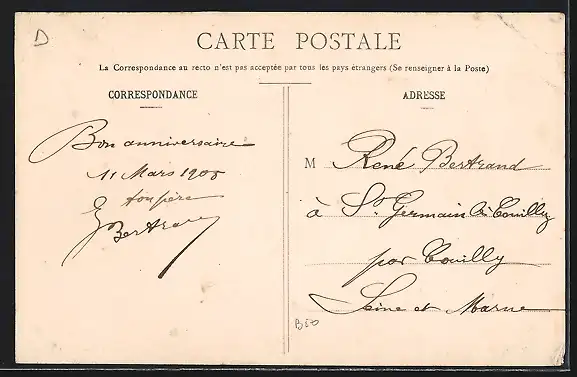 D
CARTE POSTALE
La Correspondance au recto n'est pas acceptée par tous les pays étrangers (Se renseigner à la Poste)
CORRESPONDANCE
Bon anniversaire
11 Mars 1905
ton père
Bertrand
ADRESSE
M René Bertrand
à St Germain les Couilly
par Couilly
Seine et Marne